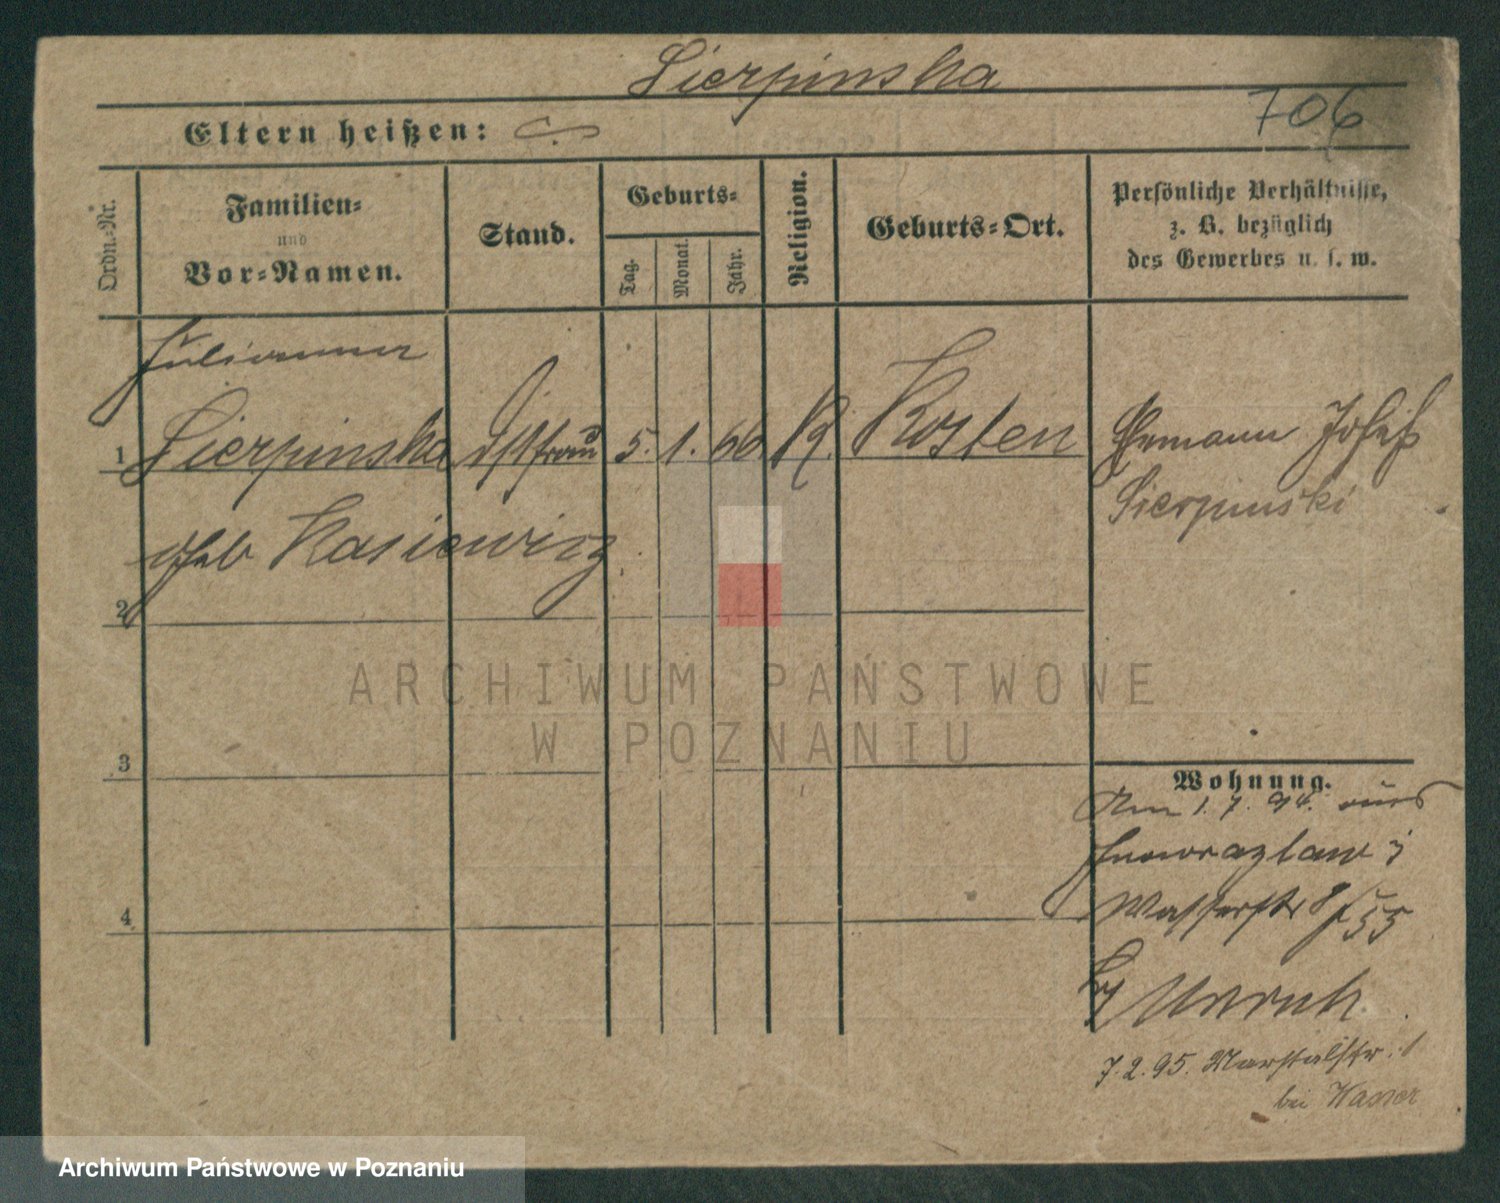 Sierpinska
706
Eltern heißen:
Ordn.-Nr.
Familien-
und
Vor-Namen.
Stand.
Geburts-
Tag.
Monat.
Jahr.
Religion.
Geburts-Ort.
Persönliche Verhältnisse,
z. B. bezüglich
des Gewerbes u. s. w.
Julianna
1 Sierpinska frau 5. 1. 66. K. Kosten
geb Kasiewicz
Ehemann Josef
Sierpinski
2
3
4
Wohnung.
Am 1.7.94. aus
Inowrazlaw
Wasserstr 8/
b/ Unruh.
7.2.95. Marstallstr. 1
bei Wasser
ARCHIWUM PAŃSTWOWE
W POZNANIU
Archiwum Państwowe w Poznaniu